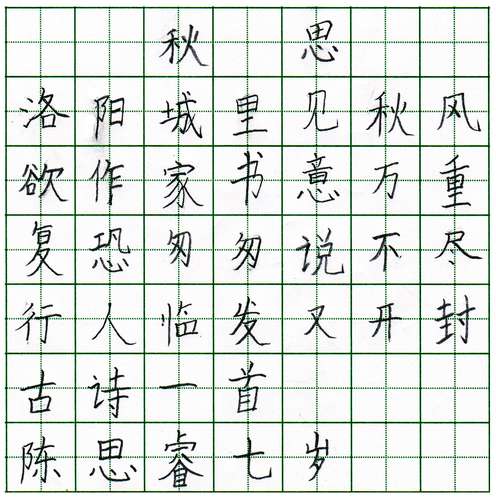 秋思
洛阳城里见秋风
欲作家书意万重
复恐匆匆说不尽
行人临发又开封
古诗一首
陈思睿七岁